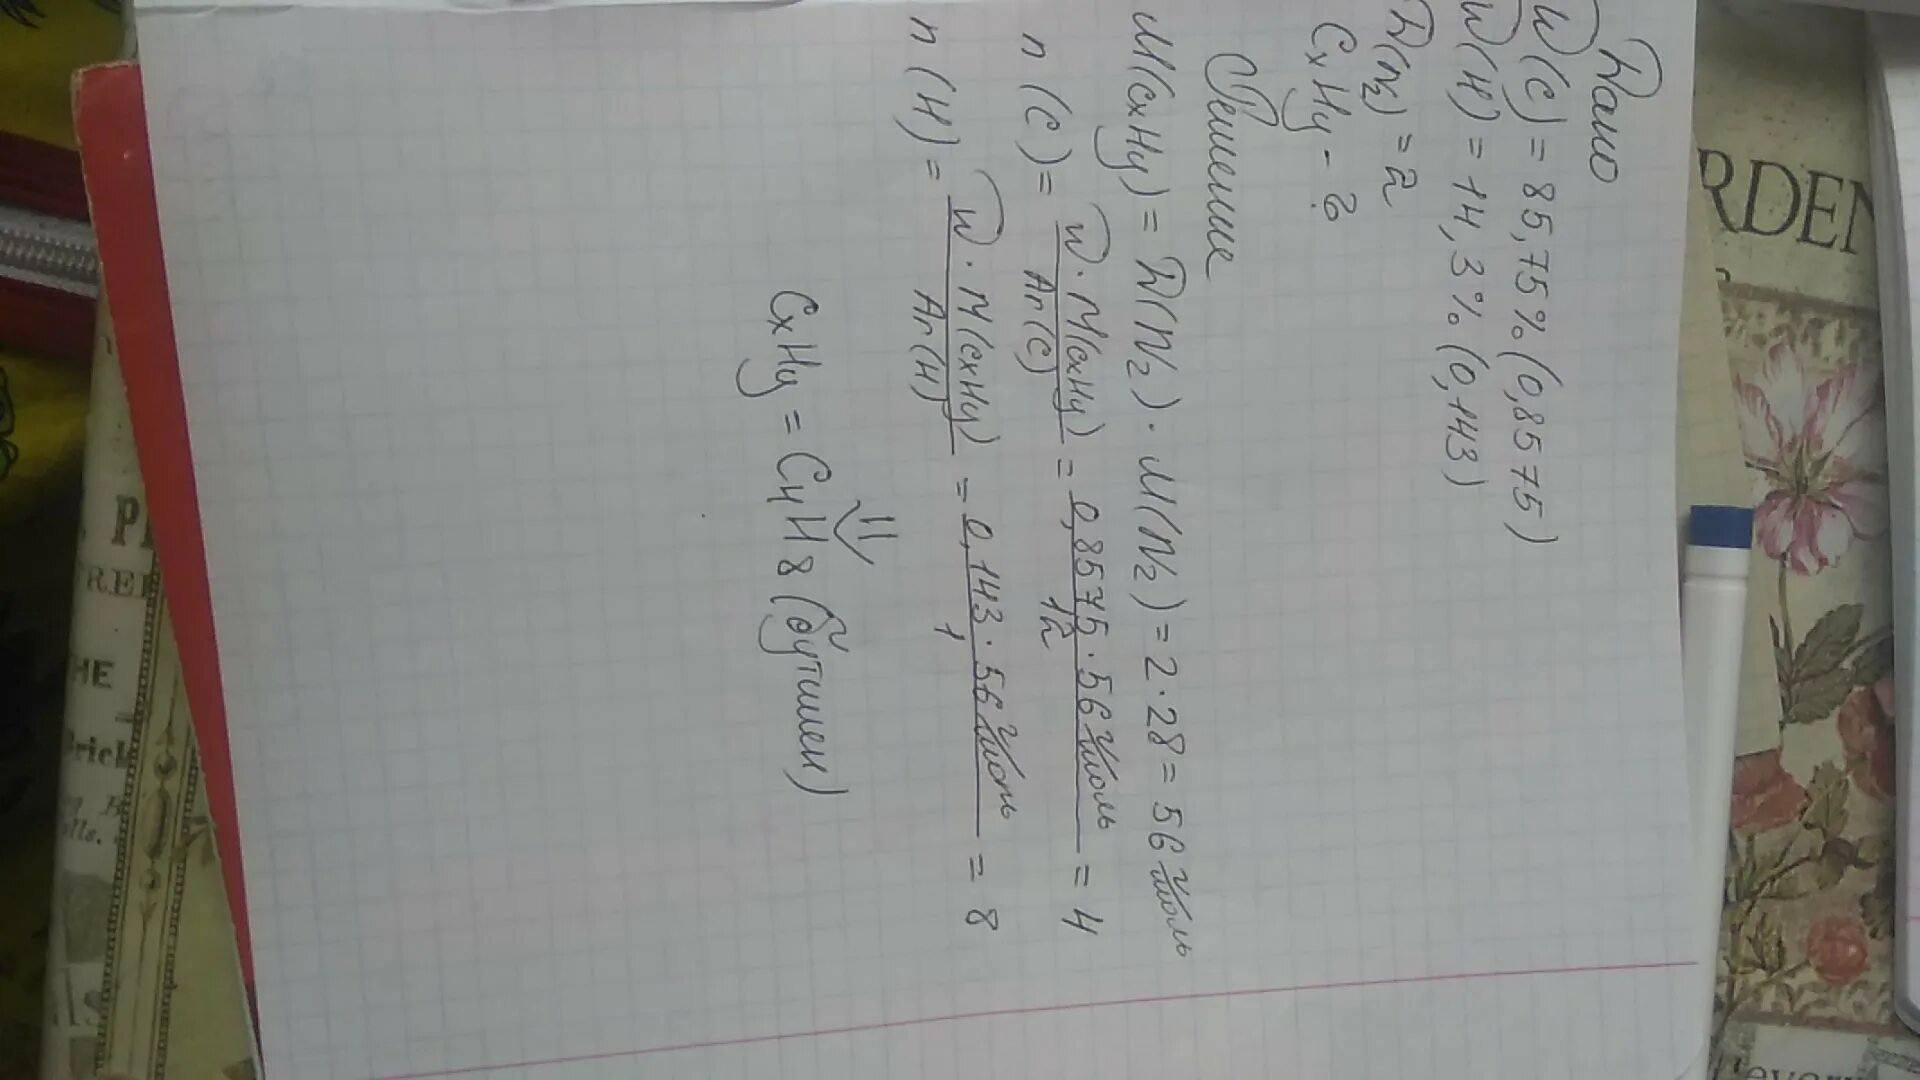 Дано
W(C) = 85,75% (0,8575)
W(H) = 14,3% (0,143)
D(N2) = 2
CxHy - ?
Решение
M(CxHy) = D(N2) · M(N2) = 2 · 28 = 56 г/моль
n (C) = W · M(CxHy) / Ar(C) = 0,8575 · 56 г/моль / 12 = 4
n (H) = W · M(CxHy) / Ar(H) = 0,143 · 56 г/моль / 1 = 8
⇓
CxHy = C4H8 (бутилен)
RDEN
P
FREE
HE
Brick
lls.